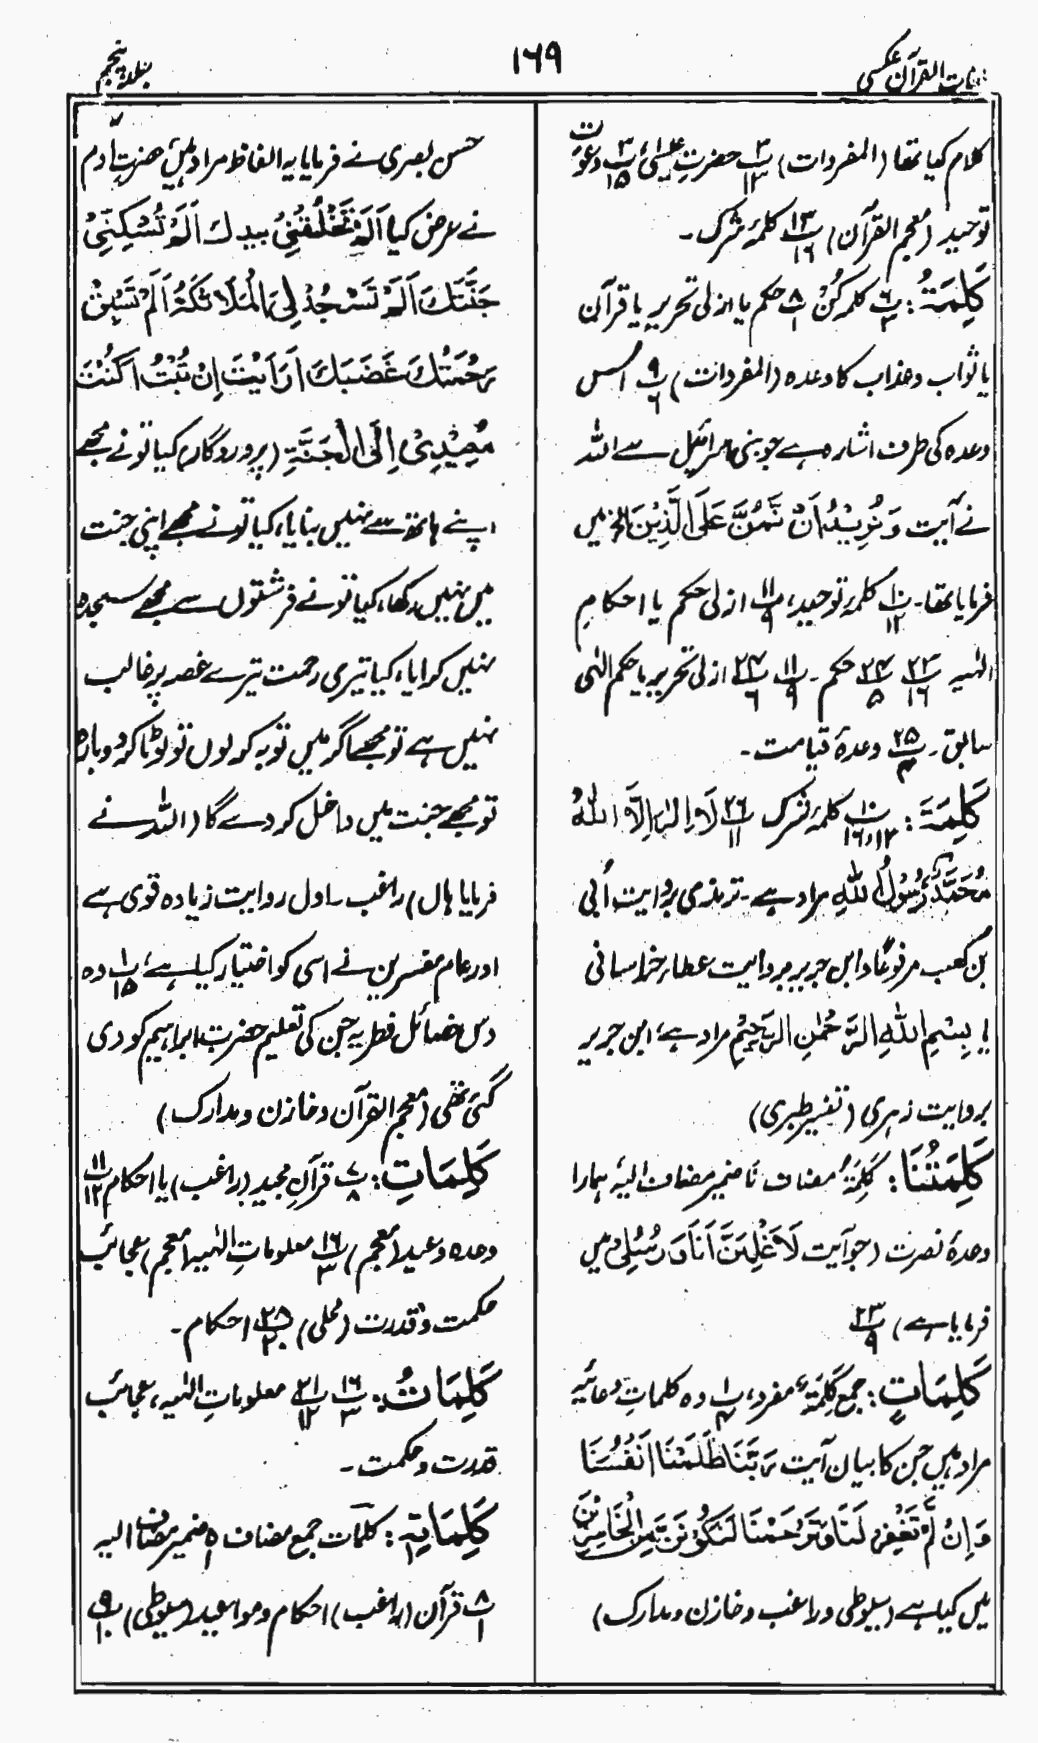 لغات القرآن عکسی
۱۶۹
جلد پنجم
کلام کیا تھا (المفردات) پ۳/۱۳ حضرتِ عیسیٰؑ پ۳/۱۵ دعوت
توحید (معجم القرآن) پ۱۳/۱۶ کلمۂ شرک۔
کَلِمَۃُ: پ۶/۲ کلمہ کُنْ پ۸/۱ حکم یا ازلی تحریر یا قرآن
یا ثواب وعذاب کا وعدہ (المفردات) پ۹/۶ اس
وعدہ کی طرف اشارہ ہے جو بنی اسرائیل سے اللہ
نے آیت وَنُرِیْدُ اَنْ نَّمُنَّ عَلَی الَّذِیْنَ الخ میں
فرمایا تھا۔ پ۱۰/۱۲ کلمۂ توحید، پ۱۱/۹ ازلی حکم یا احکامِ
الٰہیہ پ۲۳/۱۶ پ۲۴/۵ حکم۔ پ۱۱/۹ پ۲۴/۶ ازلی تحریر یا حکم الٰہی
سابق۔ پ۲۵/۳ وعدۂ قیامت۔
کَلِمَۃَ: پ۱۰/۱۶،۱۲ کلمۂ شرک پ۲۶/۱۱ لَا اِلٰہَ اِلَّا اللہُ
مُحَمَّدٌ رَّسُوْلُ اللہِ مراد ہے۔ ترمذی بروایت اُبی
بن کعب مرفوعًا وابن جریر بروایت عطار خراسانی
یا بِسْمِ اللہِ الرَّحْمٰنِ الرَّحِیْمِ مراد ہے، ابن جریر
بروایت زہری (تفسیر طبری)
کَلِمَتُنَا: کَلِمَۃُ مضاف نَا ضمیر مضاف الیہ، ہمارا
وعدۂ نصرت (جو آیت لَاَغْلِبَنَّ اَنَا وَرُسُلِیْ میں
فرمایا ہے) پ۲۳/۹
کَلِمَاتٍ: جمع کَلِمَۃٌ مفرد، پ۱/۴ وہ کلماتِ دعائیہ
مراد ہیں جن کا بیان آیت رَبَّنَا ظَلَمْنَا اَنْفُسَنَا
وَاِنْ لَّمْ تَغْفِرْ لَنَا وَتَرْحَمْنَا لَنَکُوْنَنَّ مِنَ الْخَاسِرِیْنَ
میں کیا ہے (سیوطی وراغب وخازن ومدارک)
حسن بصری نے فرمایا یہ الفاظ مراد ہیں حضرت آدمؑ
نے عرض کیا اَلَمْ تَخْلُقْنِیْ بِیَدِكَ اَلَمْ تُسْکِنِّیْ
جَنَّتَكَ اَلَمْ تَسْجُدْ لِیْ الْمَلَائِکَۃُ اَلَمْ تَسْبِقْ
رَحْمَتُكَ غَضَبَكَ اَرَاَیْتَ اِنْ تُبْتُ اَکُنْتَ
مُعِیْدِیْ اِلَی الْجَنَّۃِ (پروردگار) کیا تو نے مجھے
اپنے ہاتھ سے نہیں بنایا، کیا تو نے مجھے اپنی جنت
میں نہیں رکھا، کیا تو نے فرشتوں سے مجھے سجدہ
نہیں کرایا، کیا تیری رحمت تیرے غصہ پر غالب
نہیں ہے تو مجھے اگر میں توبہ کرلوں تو لوٹا کر دوبارہ
تو مجھے جنت میں داخل کردے گا (اللہ نے
فرمایا ہاں) راغب۔ اول روایت زیادہ قوی ہے
اور عام مفسرین نے اسی کو اختیار کیا ہے، پ۱/۱۵ وہ
دس خصائل فطریہ جن کی تعلیم حضرت ابراہیم کو دی
گئی تھی (معجم القرآن وخازن ومدارک)
کَلِمَاتِ: پ۷/۸ قرآنِ مجید (راغب) یا احکام پ۱۱/۱۲
وعدہ وعید (معجم) پ۱۶/۳ معلوماتِ الٰہیہ (معجم) عجائب
حکمت وقدرت (محلی) پ۲۸/۲۰ احکام۔
کَلِمَاتُ: پ۱۶/۳ پ۲۱/۱۲ معلوماتِ الٰہیہ، عجائب
قدرت وحکمت۔
کَلِمَاتِہٖ: کلمات جمع مضاف ہٖ ضمیر مضاف الیہ
پ۸/۱ قرآن (راغب) احکام ومواعید (سیوطی) پ۹/۱۰